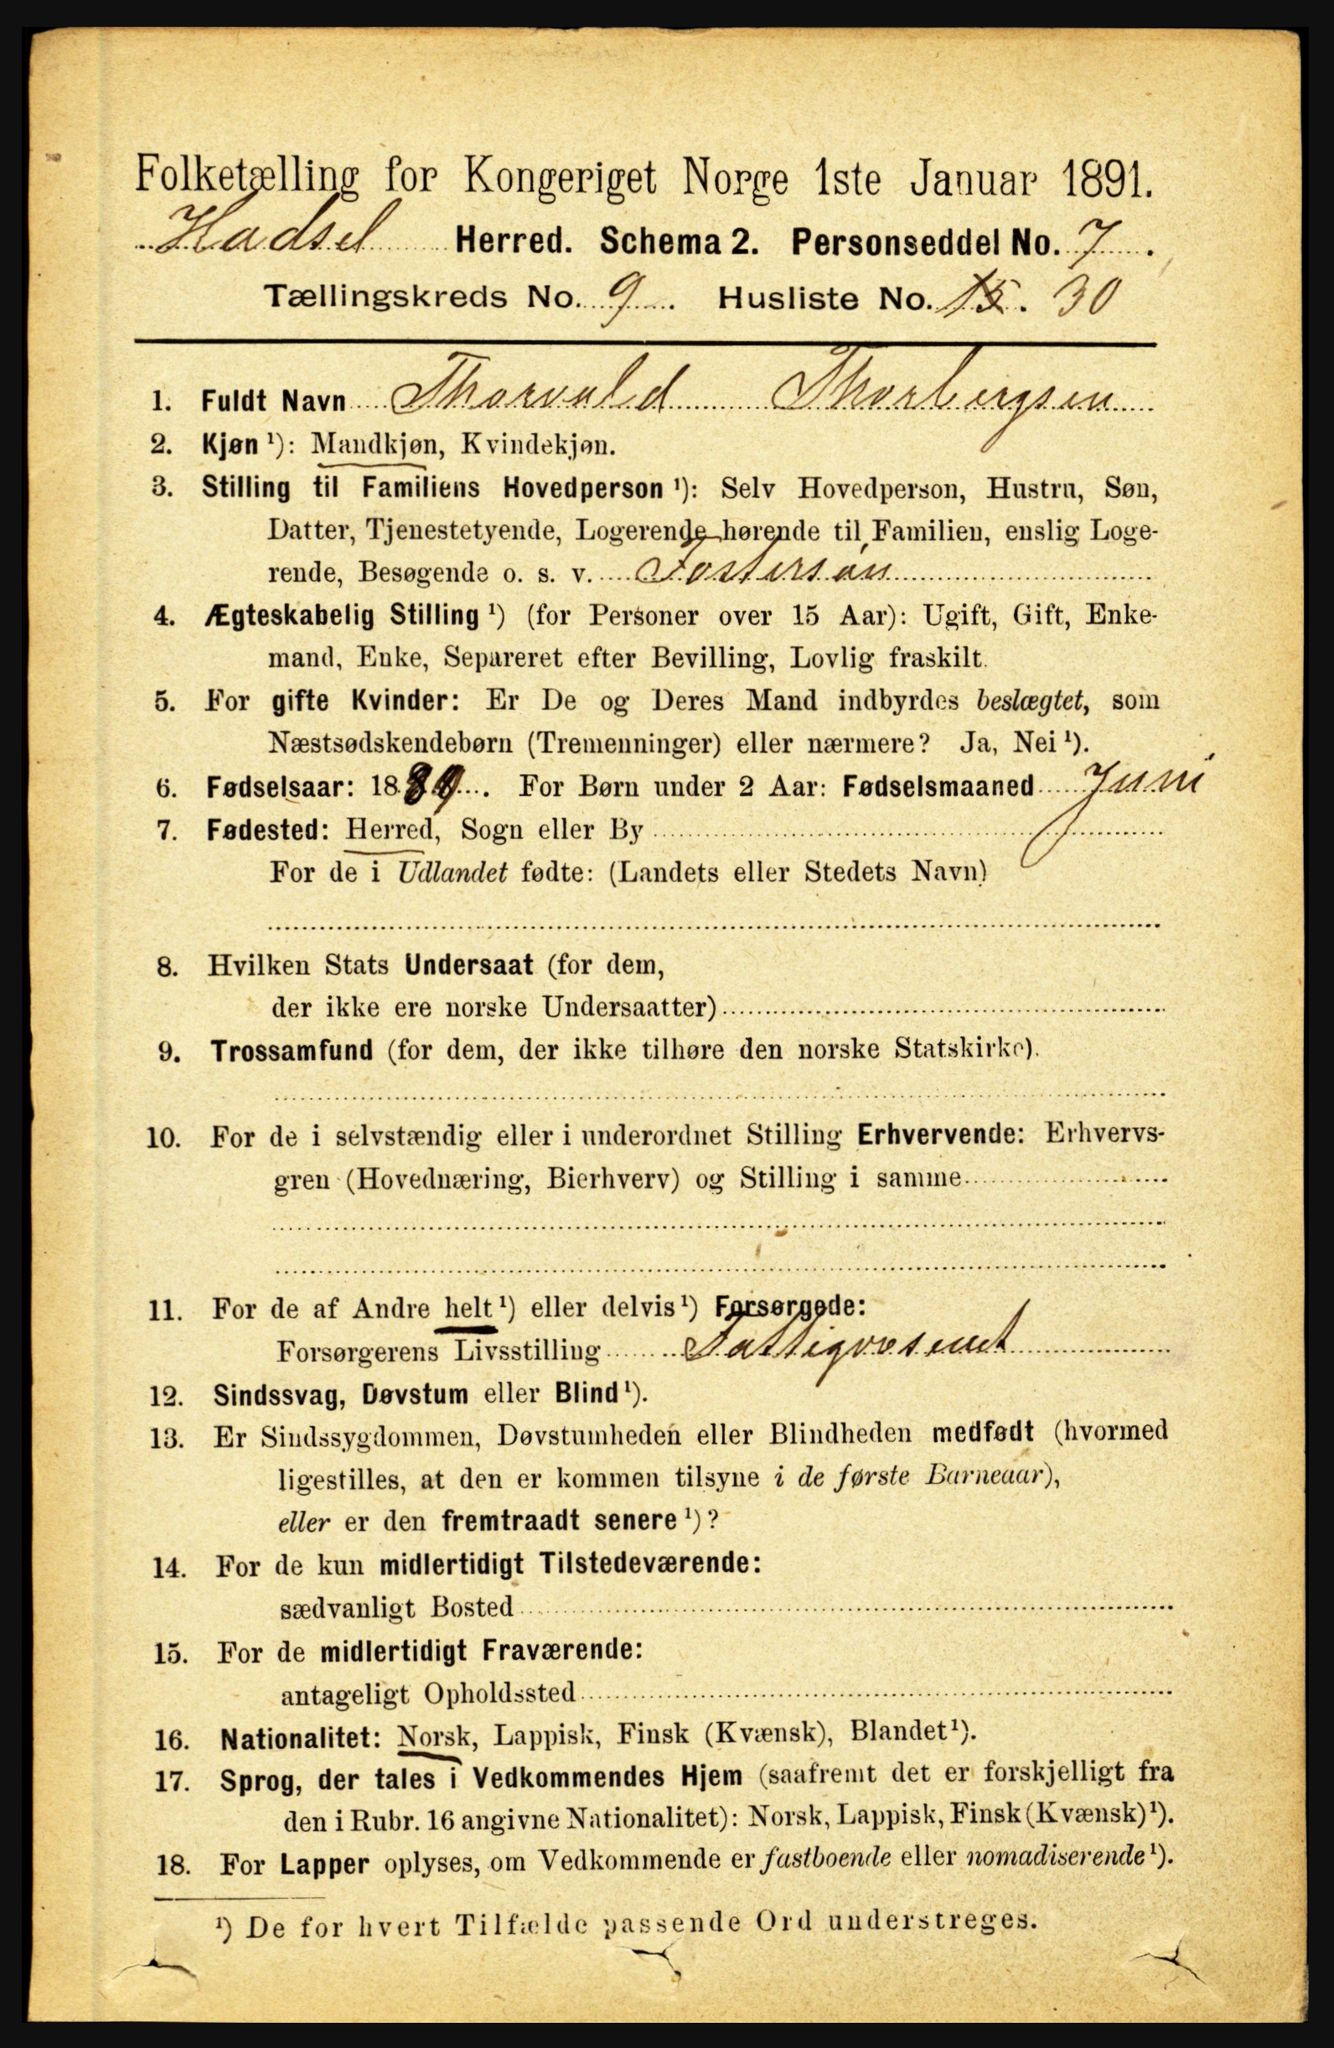 Folketælling for Kongeriget Norge 1ste Januar 1891.
Hadsel Herred. Schema 2. Personseddel No. 7.
Tællingskreds No. 9. Husliste No. 15. 30
1. Fuldt Navn Thorvald Thorbergsen
2. Kjøn ¹): Mandkjøn, Kvindekjøn.
3. Stilling til Familiens Hovedperson ¹): Selv Hovedperson, Hustru, Søn,
Datter, Tjenestetyende, Logerende hørende til Familien, enslig Loge-
rende, Besøgende o. s. v. Fostersøn
4. Ægteskabelig Stilling ¹) (for Personer over 15 Aar): Ugift, Gift, Enke-
mand, Enke, Separeret efter Bevilling, Lovlig fraskilt.
5. For gifte Kvinder: Er De og Deres Mand indbyrdes beslægtet, som
Næstsødskendebørn (Tremenninger) eller nærmere? Ja, Nei ¹).
6. Fødselsaar: 1889. For Børn under 2 Aar: Fødselsmaaned Juni
7. Fødested: Herred, Sogn eller By
For de i Udlandet fødte: (Landets eller Stedets Navn)
8. Hvilken Stats Undersaat (for dem,
der ikke ere norske Undersaatter)
9. Trossamfund (for dem, der ikke tilhøre den norske Statskirke).
10. For de i selvstændig eller i underordnet Stilling Erhvervende: Erhvervs-
gren (Hovednæring, Bierhverv) og Stilling i samme
11. For de af Andre helt ¹) eller delvis ¹) Forsørgede:
Forsørgerens Livsstilling Fattigvæsenet
12. Sindssvag, Døvstum eller Blind ¹).
13. Er Sindssygdommen, Døvstumheden eller Blindheden medfødt (hvormed
ligestilles, at den er kommen tilsyne i de første Barneaar),
eller er den fremtraadt senere ¹)?
14. For de kun midlertidigt Tilstedeværende:
sædvanligt Bosted
15. For de midlertidigt Fraværende:
antageligt Opholdssted
16. Nationalitet: Norsk, Lappisk, Finsk (Kvænsk), Blandet ¹).
17. Sprog, der tales i Vedkommendes Hjem (saafremt det er forskjelligt fra
den i Rubr. 16 angivne Nationalitet): Norsk, Lappisk, Finsk (Kvænsk) ¹).
18. For Lapper oplyses, om Vedkommende er fastboende eller nomadiserende ¹).
¹) De for hvert Tilfælde passende Ord understreges.